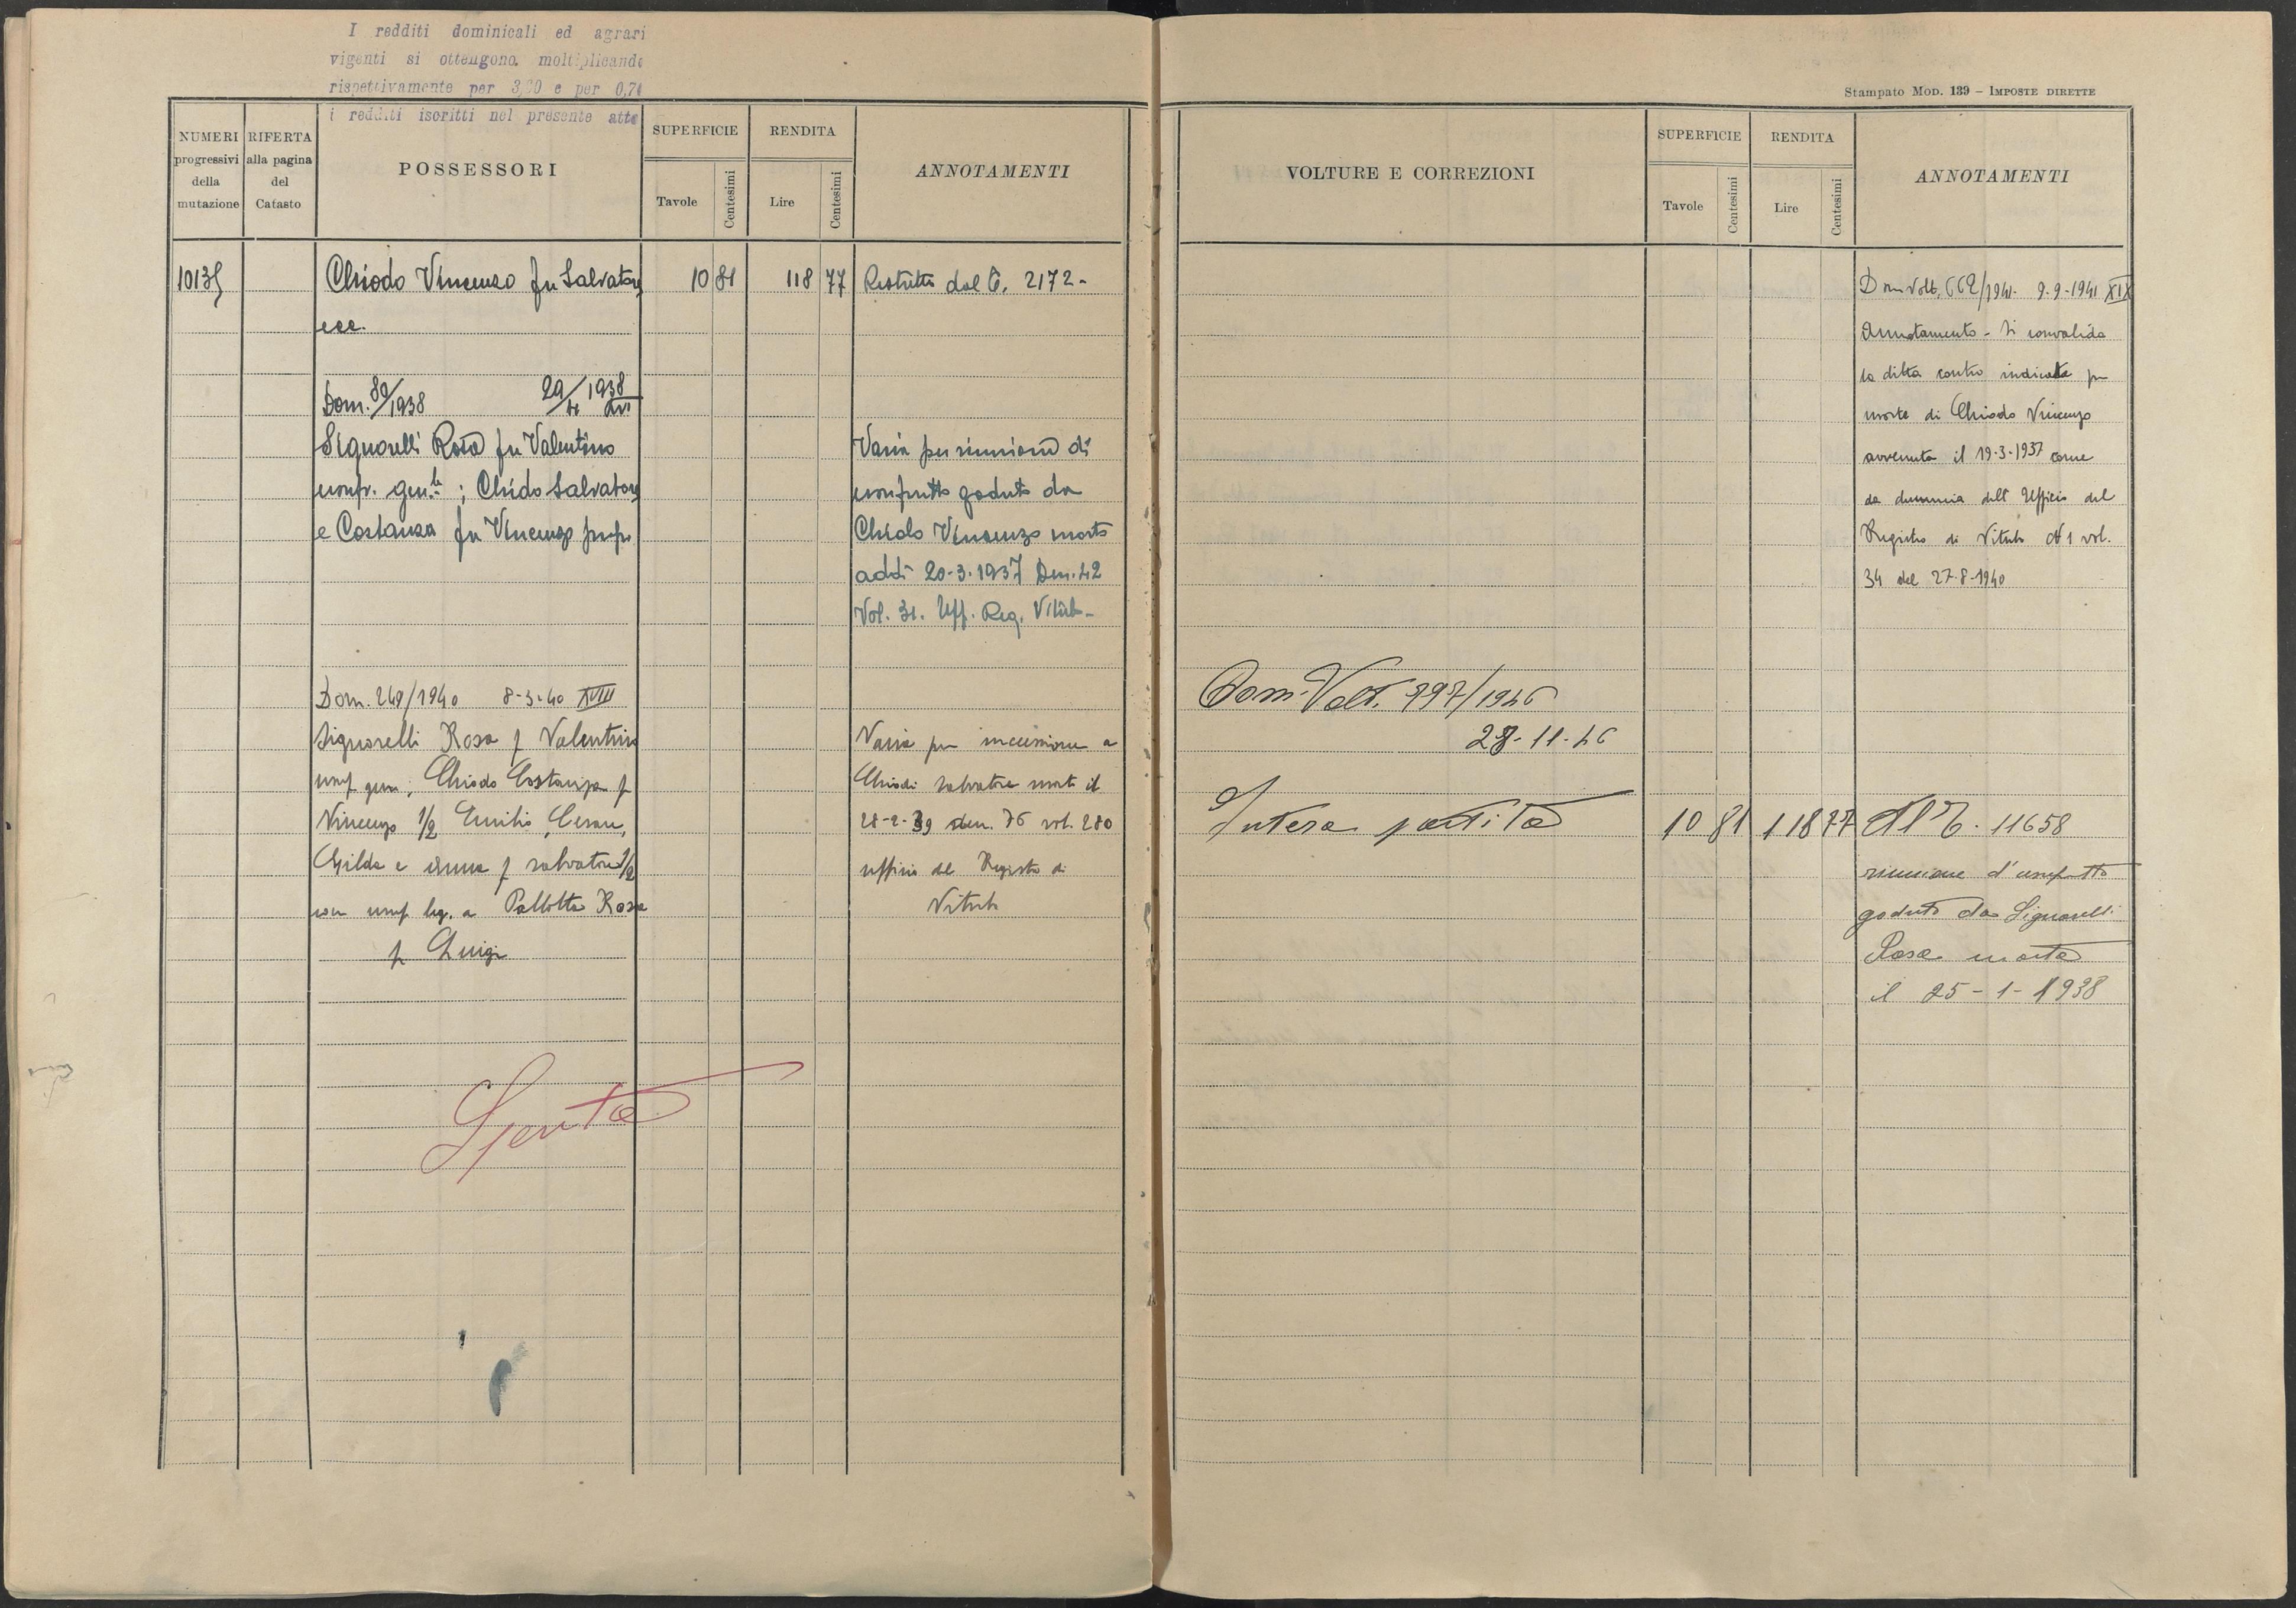 I redditi dominicali ed agrari
vigenti si ottengono moltiplicando
rispettivamente per 3,20 e per 0,74
i redditi iscritti nel presente atto
NUMERI
progressivi
della
mutazione
RIFERTA
alla pagina
del
Catasto
POSSESSORI
SUPERFICIE
Tavole
Centesimi
RENDITA
Lire
Centesimi
ANNOTAMENTI
Chiodo Vincenzo fu Salvatore 10 81 118 77 Restretto dal C. 2172 -
ecc.
Dom. 89/1938 XVI
Signorelli Rosa fu Valentino
usufr. gen.le ; Chiodo Salvatore
e Costanza fu Vincenzo propr.
Varia per riunione di
usufrutto goduto da
Chiodo Vincenzo morto
addì 20-3-1937 Den. 42
Vol. 31. Uff. Reg. Viterb-
Dom. 249/1940 8-3-40 XVIII
Signorelli Rosa f Valentino
usuf gen; Chiodo Costanza f
Vincenzo 1/2 Emilio, Cesare,
Gilda e Anna f Salvatore 1/2
con usuf leg. a Pallotta Rosa
f Luigi
Varia per successione a
Chiodi Salvatore morto il
28-2-39 den. 76 vol. 280
ufficio del Registro di
Viterb
Spenta
Stampato Mod. 139 – IMPOSTE DIRETTE
VOLTURE E CORREZIONI
SUPERFICIE
Tavole
Centesimi
RENDITA
Lire
Centesimi
ANNOTAMENTI
Dom Volt. 662/1941. 9-9-1941 XIX
Annotamento - Si convalida
la ditta contro indicata per
morte di Chiodo Vincenzo
avvenuta il 19-3-1937 come
da denuncia dell'Ufficio del
Registro di Viterb N 1 vol.
34 del 27-8-1940
Dom-Volt. 797/1946
28-11-46
Intera partita 10 81 118 77 Al C. 11658
riunione d'usufrutto
goduto da Signorelli
Rosa morta
il 25-1-1938